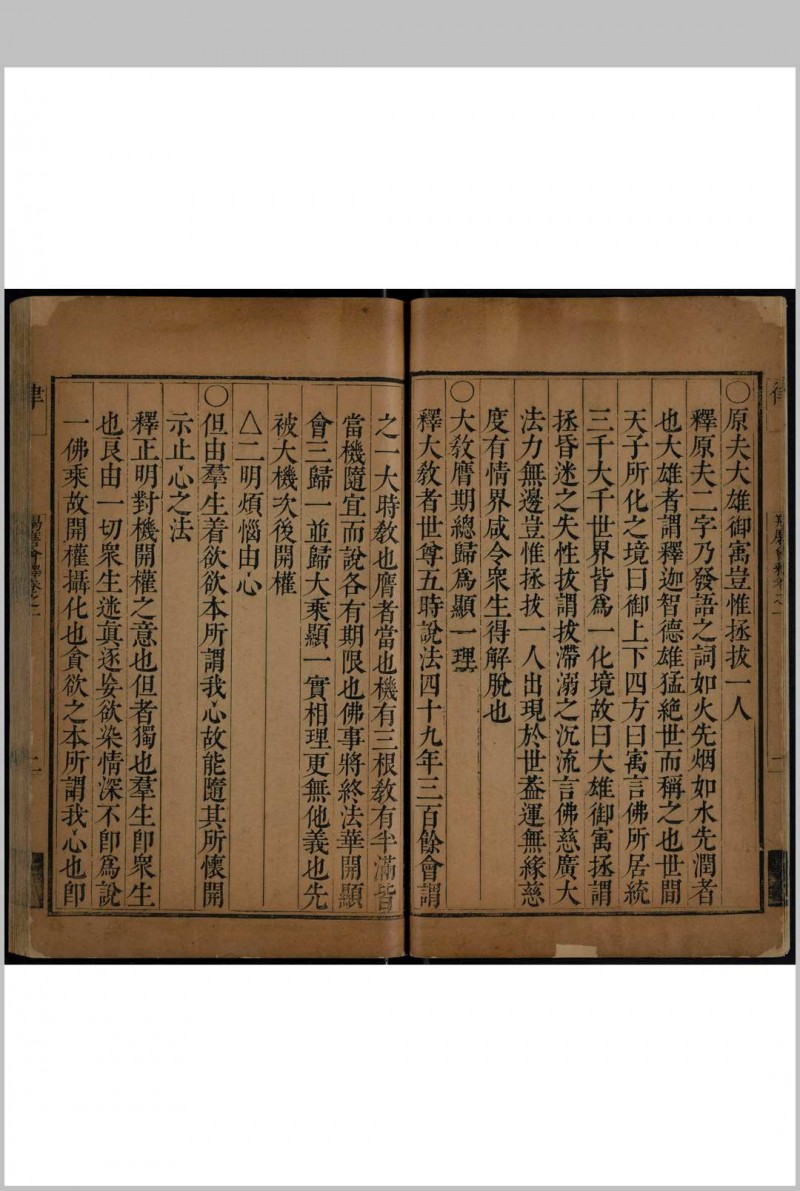 〇原夫大雄御㝢豈惟拯拔一人
釋原夫二字乃發語之詞如火先烟如水先潤者
也大雄者謂釋迦智德雄猛絶世而稱之也世間
天子所化之境曰御上下四方曰㝢言佛所居統
三千大千世界皆爲一化境故曰大雄御㝢拯謂
拯昏迷之失性拔謂拔滯溺之沉流言佛慈廣大
法力無邊豈惟拯拔一人出現於世葢運無緣慈
度有情界咸令衆生得解脫也
〇大敎膺期總歸爲顯一理
釋大敎者世尊五時說法四十九年三百餘會謂
之一大時敎也膺者當也機有三根敎有半滿皆
當機隨宜而說各有期限也佛事將終法華開顯
會三歸一並歸大乘顯一實相理更無他義也先
被大機次後開權
△二明煩惱由心
〇但由羣生着欲欲本所謂我心故能隨其所懷開
示止心之法
釋正明對機開權之意也但者獨也羣生卽衆生
也良由一切衆生迷真逐妄欲染情深不卽爲說
一佛乘故開權攝化也貪欲之本所謂我心也卽
律
二